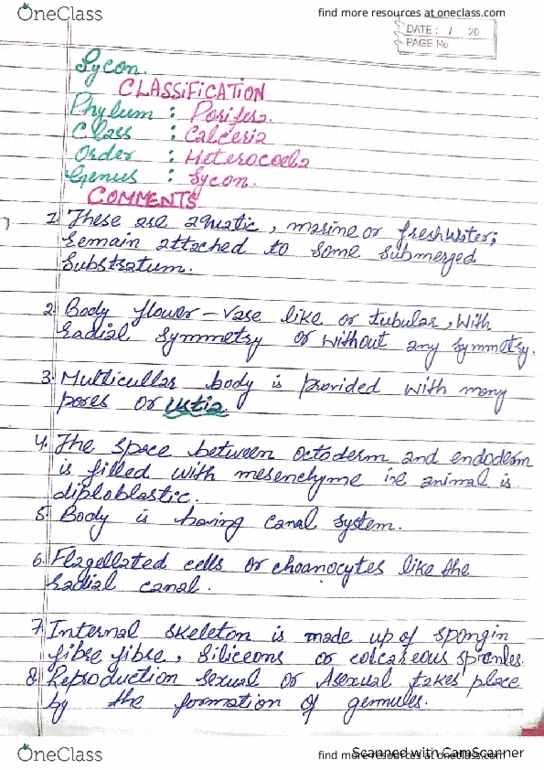 OneClass
find more resources at oneclass.com
DATE: / 20
PAGE No
Sycon.
CLASSIFICATION
Phylum : Porifera.
Class : Calceria
Order : Heterocoela
Genus : Sycon.
COMMENTS
1. These are aquatic, marine or freshwater;
remain attached to some submerged
Substratum.
2. Body flower-vase like or tubular, with
radial symmetry or without any symmetry.
3. Multicullar body is provided with many
pores or ustia
4. The space between octoderm and endoderm
is filled with mesenchyme i.e animal is
diploblastic.
5. Body is having canal system.
6. Flagellated cells or choanocytes like the
radial canal.
7. Internal skeleton is made up of spongin
fibre fibre, Siliceons or colcareous
8. Reproduction sexual or Asexual takes place
by the formation of gemules.
OneClass
find more resources at oneclass.com
Scanned with CamScanner